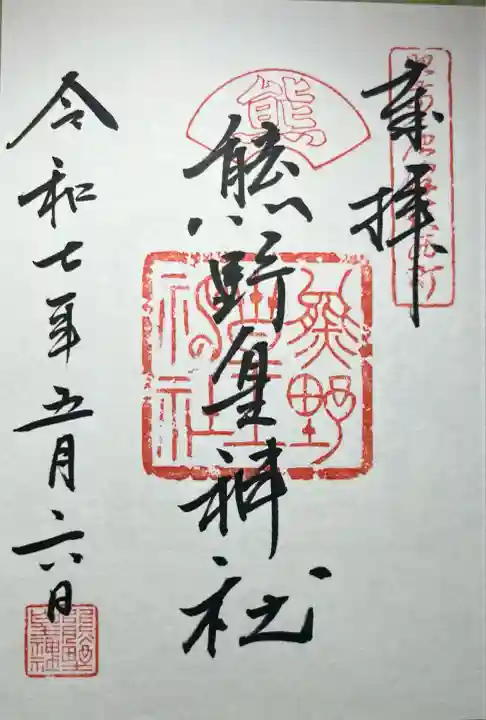 奉拝
熊
熊野皇神社
熊野
皇
神の社
令和七年五月六日